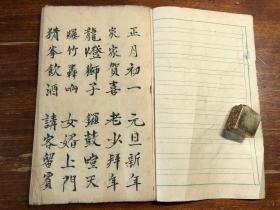 正月初一 元旦新年
家家賀喜 老少拜年
龍燈獅子 鑼鼓喧天
爆竹轟响 女婿上門
猜拳飲酒 請客留賓